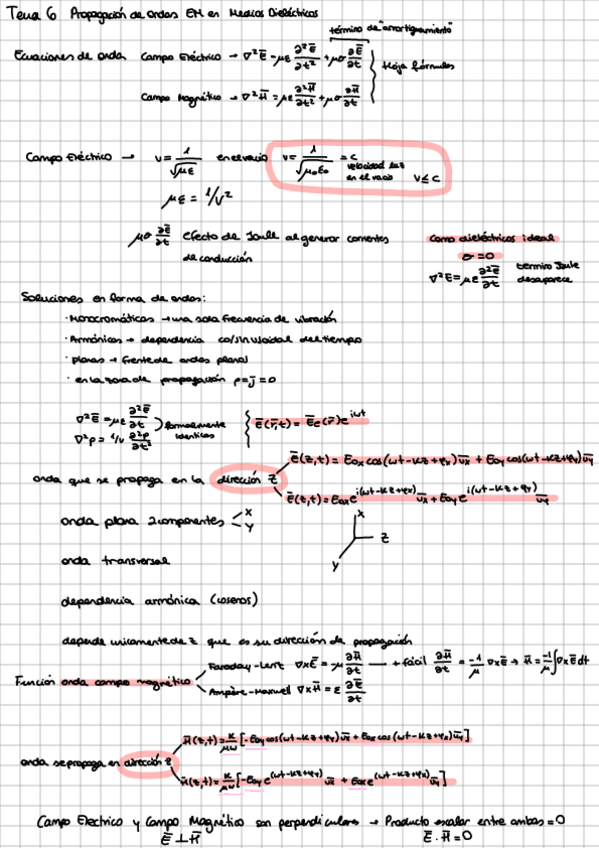 Tema 6 Propagación de ondas EM en Medios Dieléctricos
término de "amortiguamiento"
Ecuaciones de onda Campo Eléctrico → ∇²E̅ = με ∂²E̅/∂t² + μσ ∂E̅/∂t
Hoja fórmulas
Campo Magnético → ∇²H̅ = με ∂²H̅/∂t² + μσ ∂H̅/∂t
Campo Eléctrico → v = 1/√με en el vacío v = 1/√μ₀ε₀ = c velocidad luz en el vacío v ≤ c
με = 1/v²
μσ ∂E̅/∂t efecto de Joule al generar corrientes
de conducción
como dieléctricos ideal
σ = 0
∇²E = με ∂²E̅/∂t término Joule desaparece
Soluciones en forma de ondas:
· Monocromáticas → una sola frecuencia de vibración
· Armónicas → dependencia co/sinusoidal del tiempo
· planas → frente de ondas planas
· en la zona de propagación ρ = J̅ = 0
∇²E̅ = με ∂²E̅/∂t
∇²p = 1/v ∂²p/∂t²
formalmente idénticas
E̅(r̅,t) = E̅c(r̅)e^iωt
E̅(z,t) = Eox cos(ωt-kz+φx)u̅x + Eoy cos(ωt-kz+φy)u̅y
onda que se propaga en la dirección z
E̅(z,t) = Eox e^i(ωt-kz+φx) u̅x + Eoy e^i(ωt-kz+φy) u̅y
onda plana 2 componentes x y
x
z
y
onda transversal
dependencia armónica (cosenos)
depende unicamente de z que es su dirección de propagación
Función onda campo magnético
Faraday-Lenz ∇x E̅ = -μ ∂H̅/∂t → + fácil ∂H̅/∂t = -1/μ ∇x E̅ → H̅ = -1/μ ∫∇x E̅ dt
Ampère-Maxwell ∇x H̅ = ε ∂E̅/∂t
H̅(z,t) = k/μω [-Eoy cos(ωt-kz+φy)u̅x + Eox cos(ωt-kz+φx)u̅y]
onda se propaga en dirección z
H̅(z,t) = k/μω [-Eoy e^(ωt-kz+φy) u̅x + Eox e^(ωt-kz+φx) u̅y]
Campo Electrico y Campo Magnético son perpendiculares → Producto escalar entre ambos = 0
E̅ ⊥ H̅ E̅ · H̅ = 0